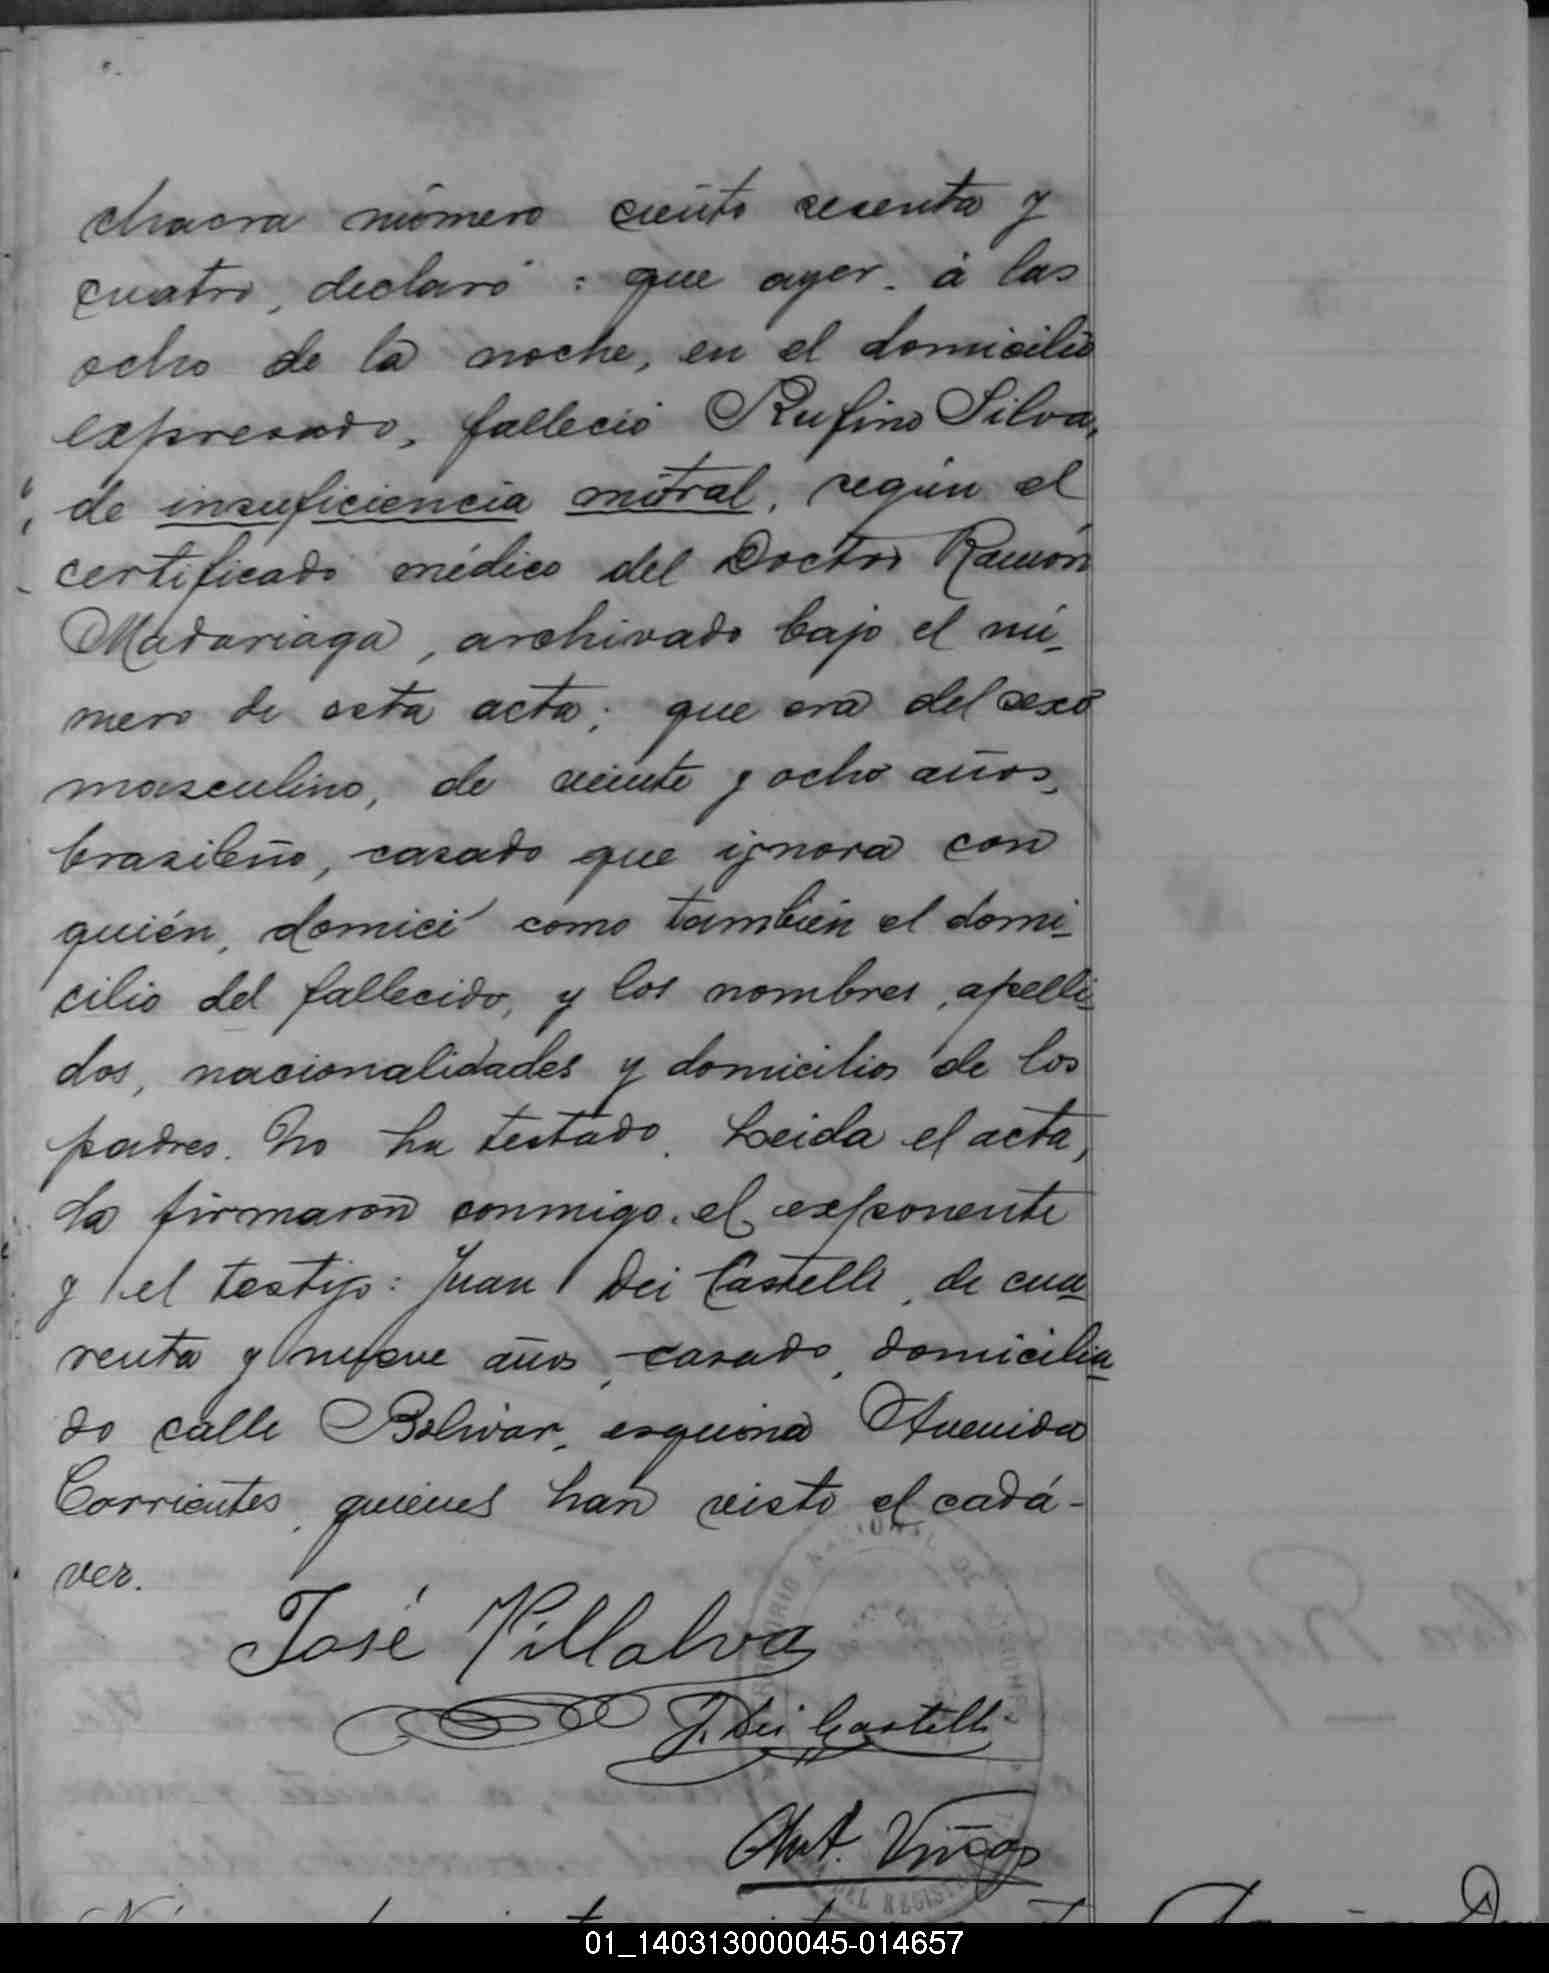 chacra número ciento sesenta y
cuatro, declaró: que ayer á las
ocho de la noche, en el domicilio
expresado, falleció Rufino Silva,
de insuficiencia mitral, según el
certificado médico del Doctor Ramón
Madariaga, archivado bajo el nú-
mero de esta acta; que era del sexo
masculino, de veinte y ocho años,
brasileño, casado que ignora con
quién, domici como también el domi-
cilio del fallecido, y los nombres, apelli-
dos, nacionalidades y domicilios de los
padres. No ha testado. Leida el acta,
la firmaron conmigo, el exponente
y el testigo: Juan Dei Castelli, de cua-
renta y nueve años, casado, domicilia-
do calle Bolívar, esquina Avenida
Corrientes, quienes han visto el cadá-
ver.
José Villalva
J. Dei Castelli
Ant. Viñas
DEL REGIST
01_140313000045-014657